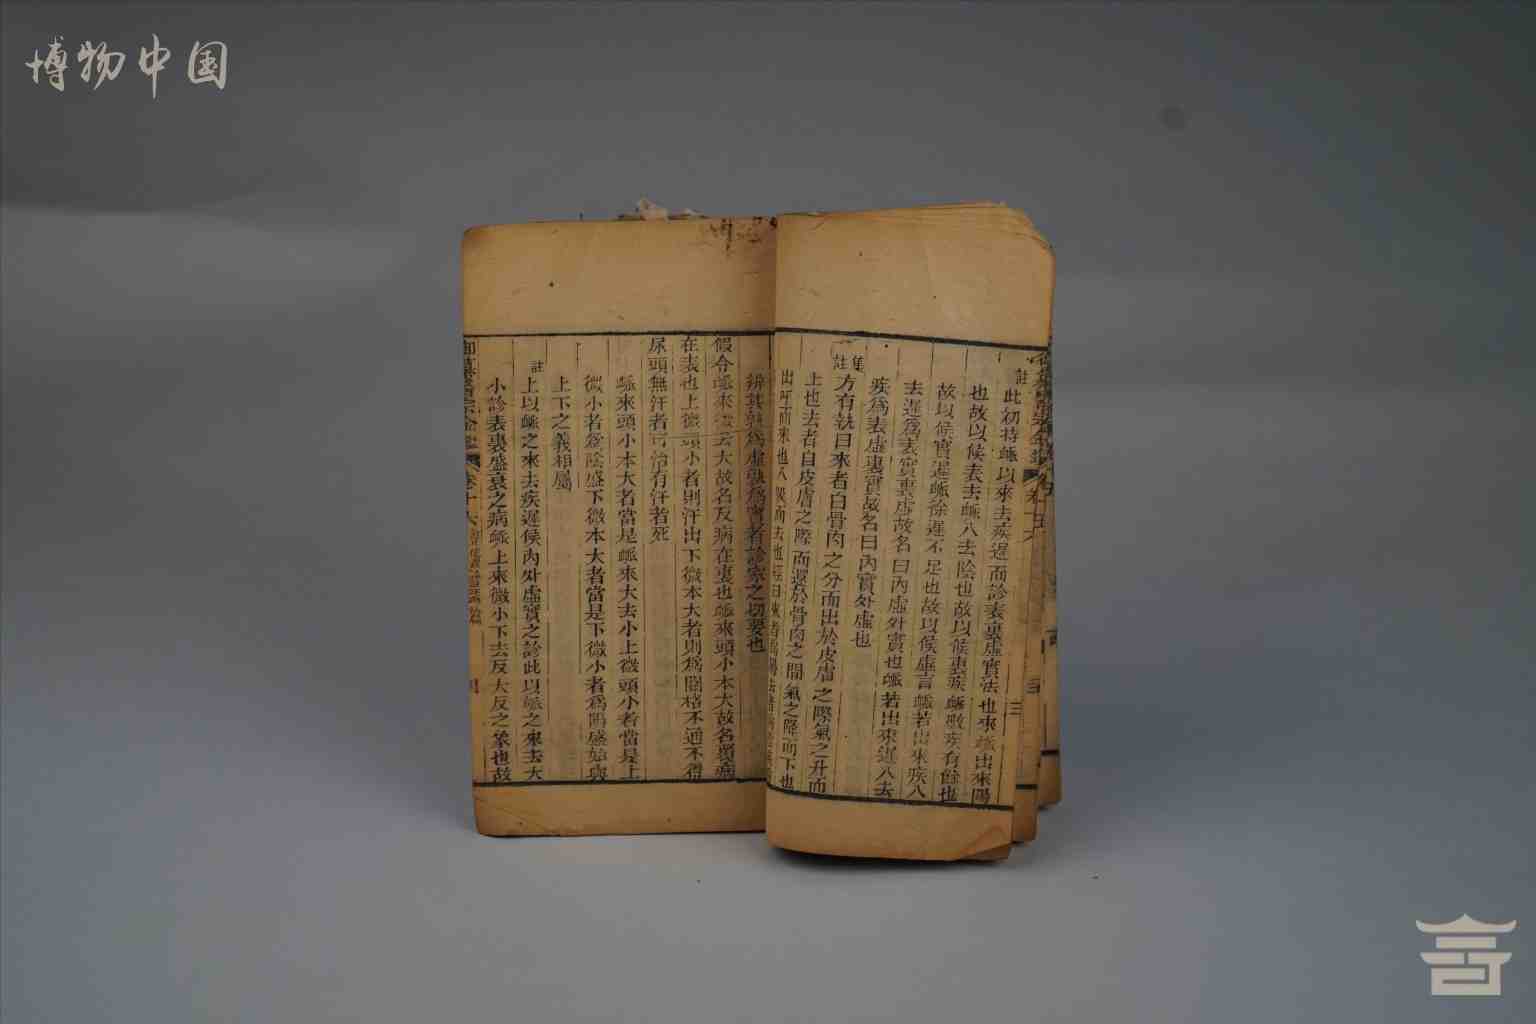 博物中国
註
此初持𧖴以來去疾遲而診表裏虛實法也來𧖴出來陽
也故以候表去𧖴入去陰也故以候裏疾𧖴數疾有餘也
故以候實遲𧖴徐遲不足也故以候虛言𧖴若出來疾入
去遲為表實裏虛故名曰內虛外實也𧖴若出來遲入去
疾為表虛裏實故名曰內實外虛也
集註
方有執曰來者自骨肉之分而出於皮膚之際氣之升而
上也去者自皮膚之際而還於骨肉之間氣之降而下也
出呼而來也入
辨其孰為虛孰為實者診家之切要也
假令𧖴來微去大故名反病在裏也𧖴來頭小本大故名覆病
在表也上微頭小者則汗出下微本大者則為關格不通不得
尿頭無汗者可治有汗者死
𧖴來頭小本大者當是𧖴來大去小上微頭小者當是上
微小者為陰盛下微本大者當是下微小者為陽盛始與
上下之義相屬
註
上以𧖴之來去疾遲候內外虛實之診此以𧖴之來去大
小診表裏盛衰之病𧖴上來微小下去反大反之象也故
卷十六